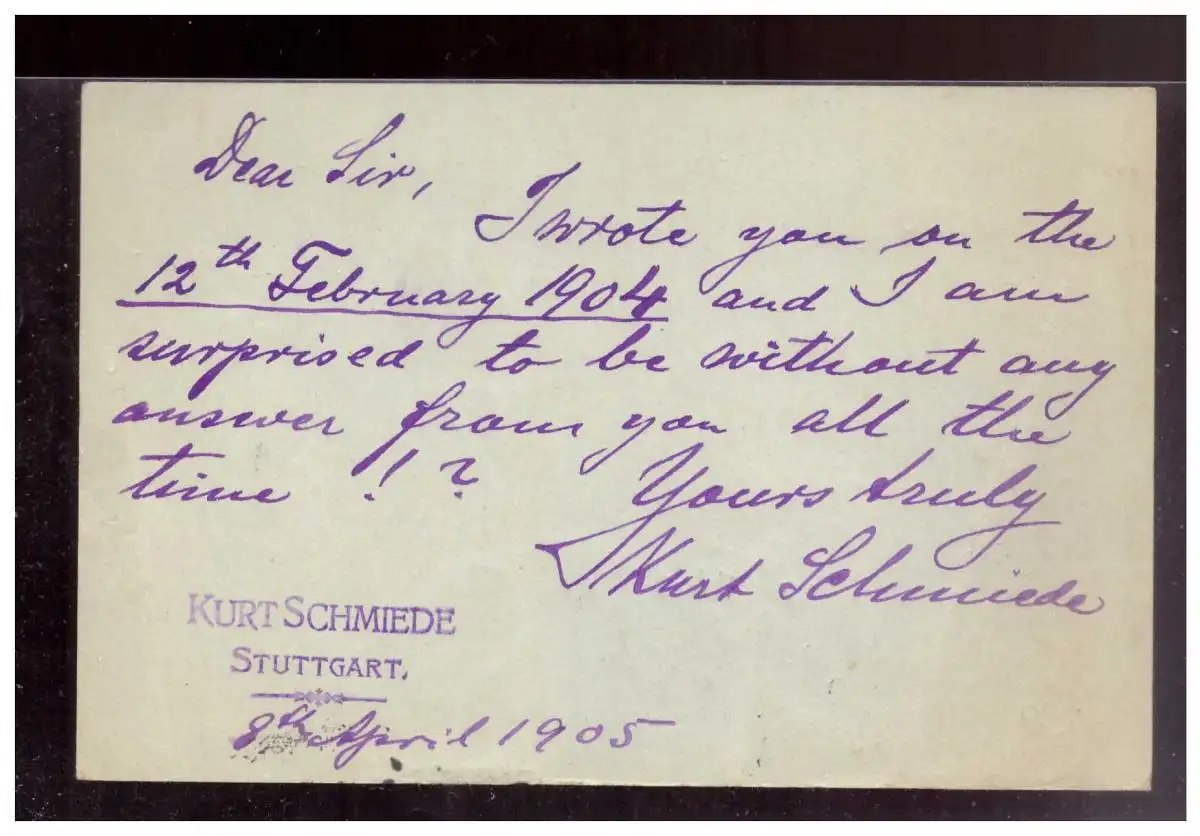 Dear Sir,
I wrote you on the
12th February 1904 and I am
surprised to be without any
answer from you all the
time !?
Yours truly
Kurt Schmiede
KURT SCHMIEDE
STUTTGART,
8th April 1905